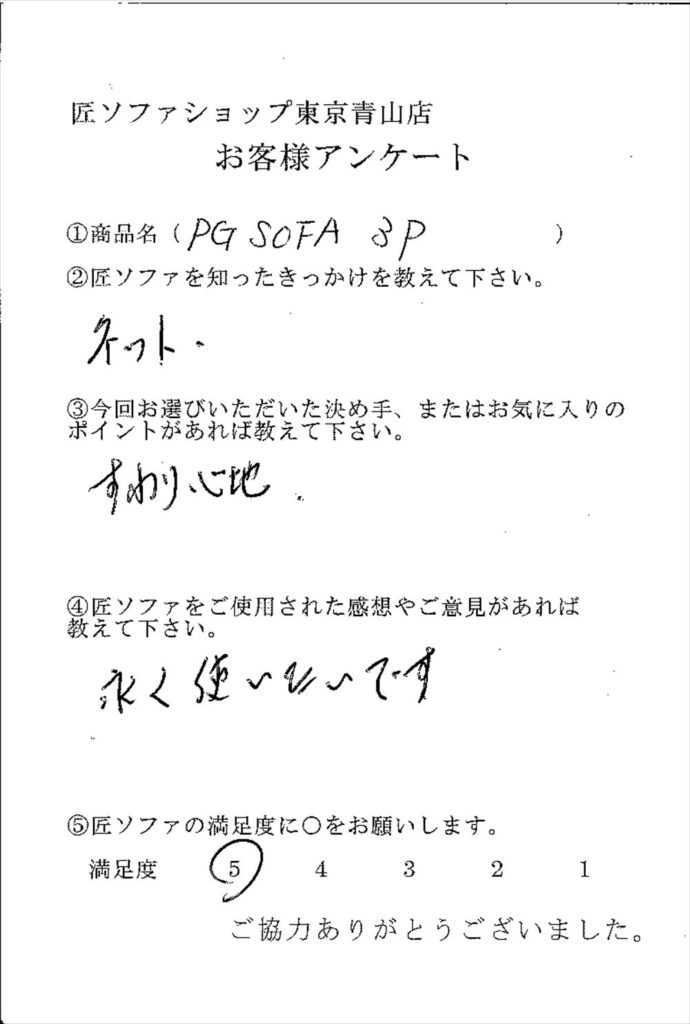 匠ソファショップ東京青山店
お客様アンケート
①商品名（PG SOFA 3P）
②匠ソファを知ったきっかけを教えて下さい。
ネット.
③今回お選びいただいた決め手、またはお気に入りの
ポイントがあれば教えて下さい。
すわり心地.
④匠ソファをご使用された感想やご意見があれば
教えて下さい。
永く使いたいです
⑤匠ソファの満足度に〇をお願いします。
満足度 5 4 3 2 1
ご協力ありがとうございました。